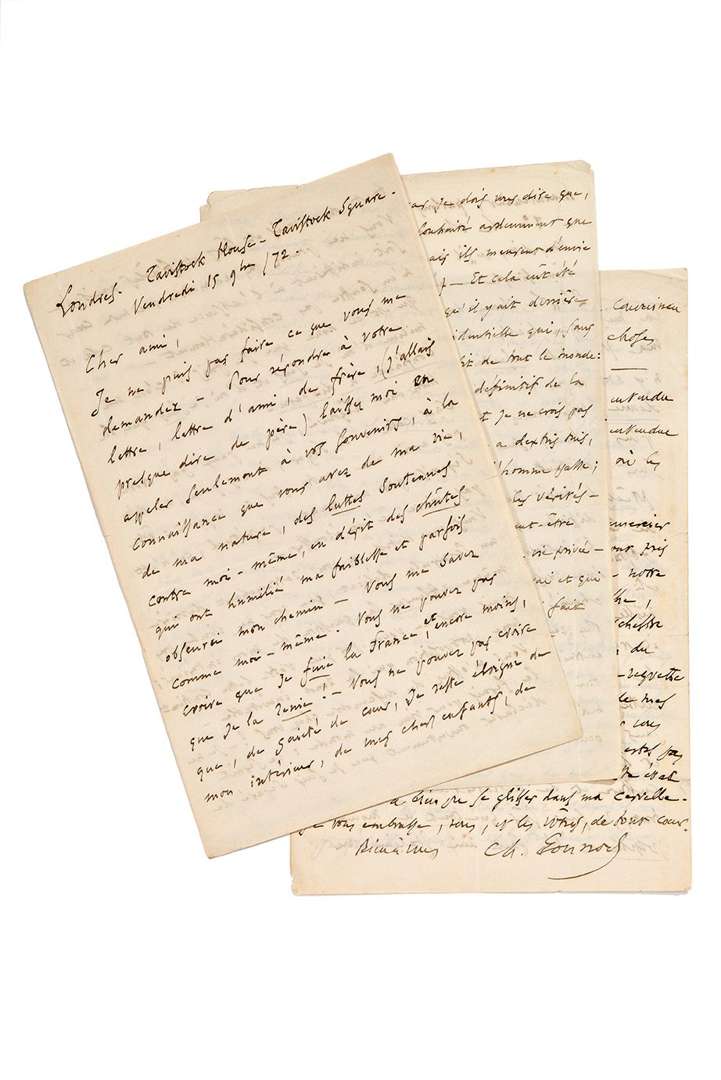 Londres. Tavistock House – Tavistock Square –
Vendredi 15 9bre /72.
Cher ami,
Je ne puis pas faire ce que vous me
demandez – Pour répondre à votre
lettre, lettre d'ami, de frère, (j'allais
presque dire de père) laissez moi en
appeler seulement à vos souvenirs, à la
connaissance que vous avez de ma vie,
de ma nature, des luttes soutenues
contre moi-même, en dépit des chûtes
qui ont humilié ma faiblesse et parfois
obscurci mon chemin – Vous me savez
comme moi-même. Vous ne pouvez pas
croire que je fuie la France, et encore moins,
que je la renie! – Vous ne pouvez pas croire
que, de gaieté de cœur, je reste éloigné de
mon intérieur, de mes chers enfants, de
je dois vous dire que,
souhaité ardemment que
ils meurent d'envie
– Et cela eût été
qu'il y ait derrière
qui, sans
et de tout le monde:
définitif de la
je ne crois pas
a dextris tuis,
l'homme
les vérités –
peut-être
vie privée –
et qui
fait
chose
entendue
entendue
où les
remercier
pris
– notre
du
de mes
vous
pas
était
se glisser dans ma cervelle –
Je vous embrasse, vous, et les vôtres, de tout cœur.
Bien à vous
Ch. Gounod